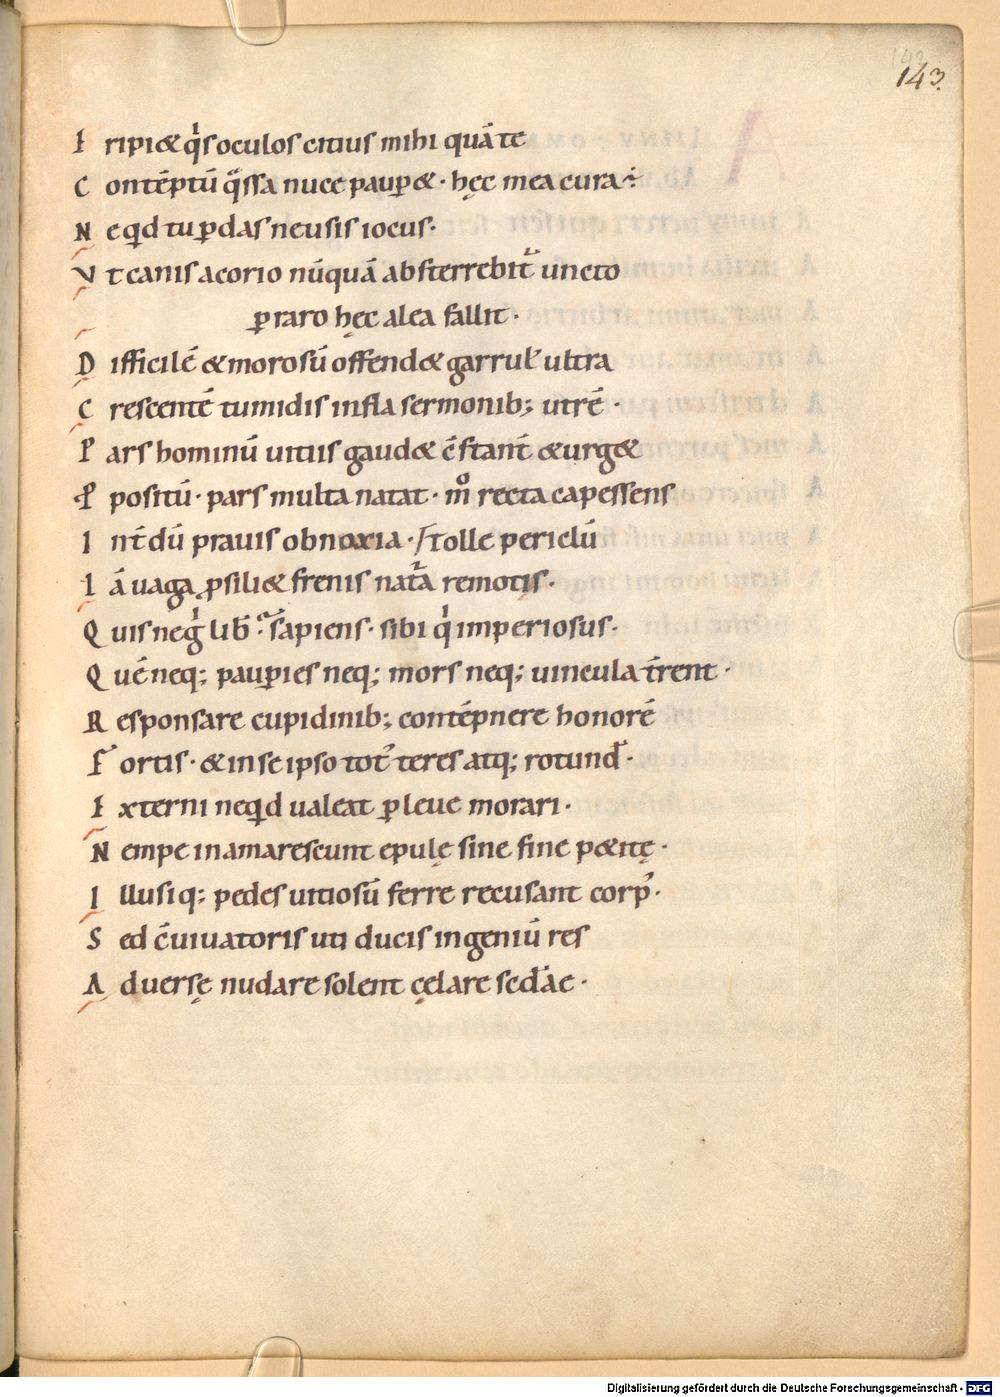 143.
E ripi& qͥs oculos citius mihi quā te
C ontēptū q̄ssa nuce paup& · hęc mea cura÷
N e qd tu pdas neu sis iocus·
V t canis a corio nūquā absterrebit̄ uncto
p raro hęc alea fallit·
D ifficilē & morosū offend& garrul' ultra
C rescentē tumidis infla sermonib; utrē·
P ars hominū uitiis gaud& c̄stant̄ & urg&
P positū· pars multa natat· mͦ recta capessens
I nt̄dū prauis obnoxia· tolle periclū
I ā uaga psili& frenis nat̄a remotis·
Q uis neg̊ lib̄· sapiens· sibi qͥ imperiosus·
Q uē neq; paupies neq; mors neq; uincula t̄rent·
R esponsare cupidinib; contēpnere honorē
F ortis· & in se ipso tot' teres atq; rotund'·
E xterni neqd ualeat p leue morari·
N empe inamarescunt epulę sine fine p&itę·
I llusiq; pedes uitiosū ferre recusant corp'·
S ed c̄uiuatoris uti ducis ingeniū res
A duersę nudare solent cęlare scd'ae·
Digitalisierung gefördert durch die Deutsche Forschungsgemeinschaft - DFG